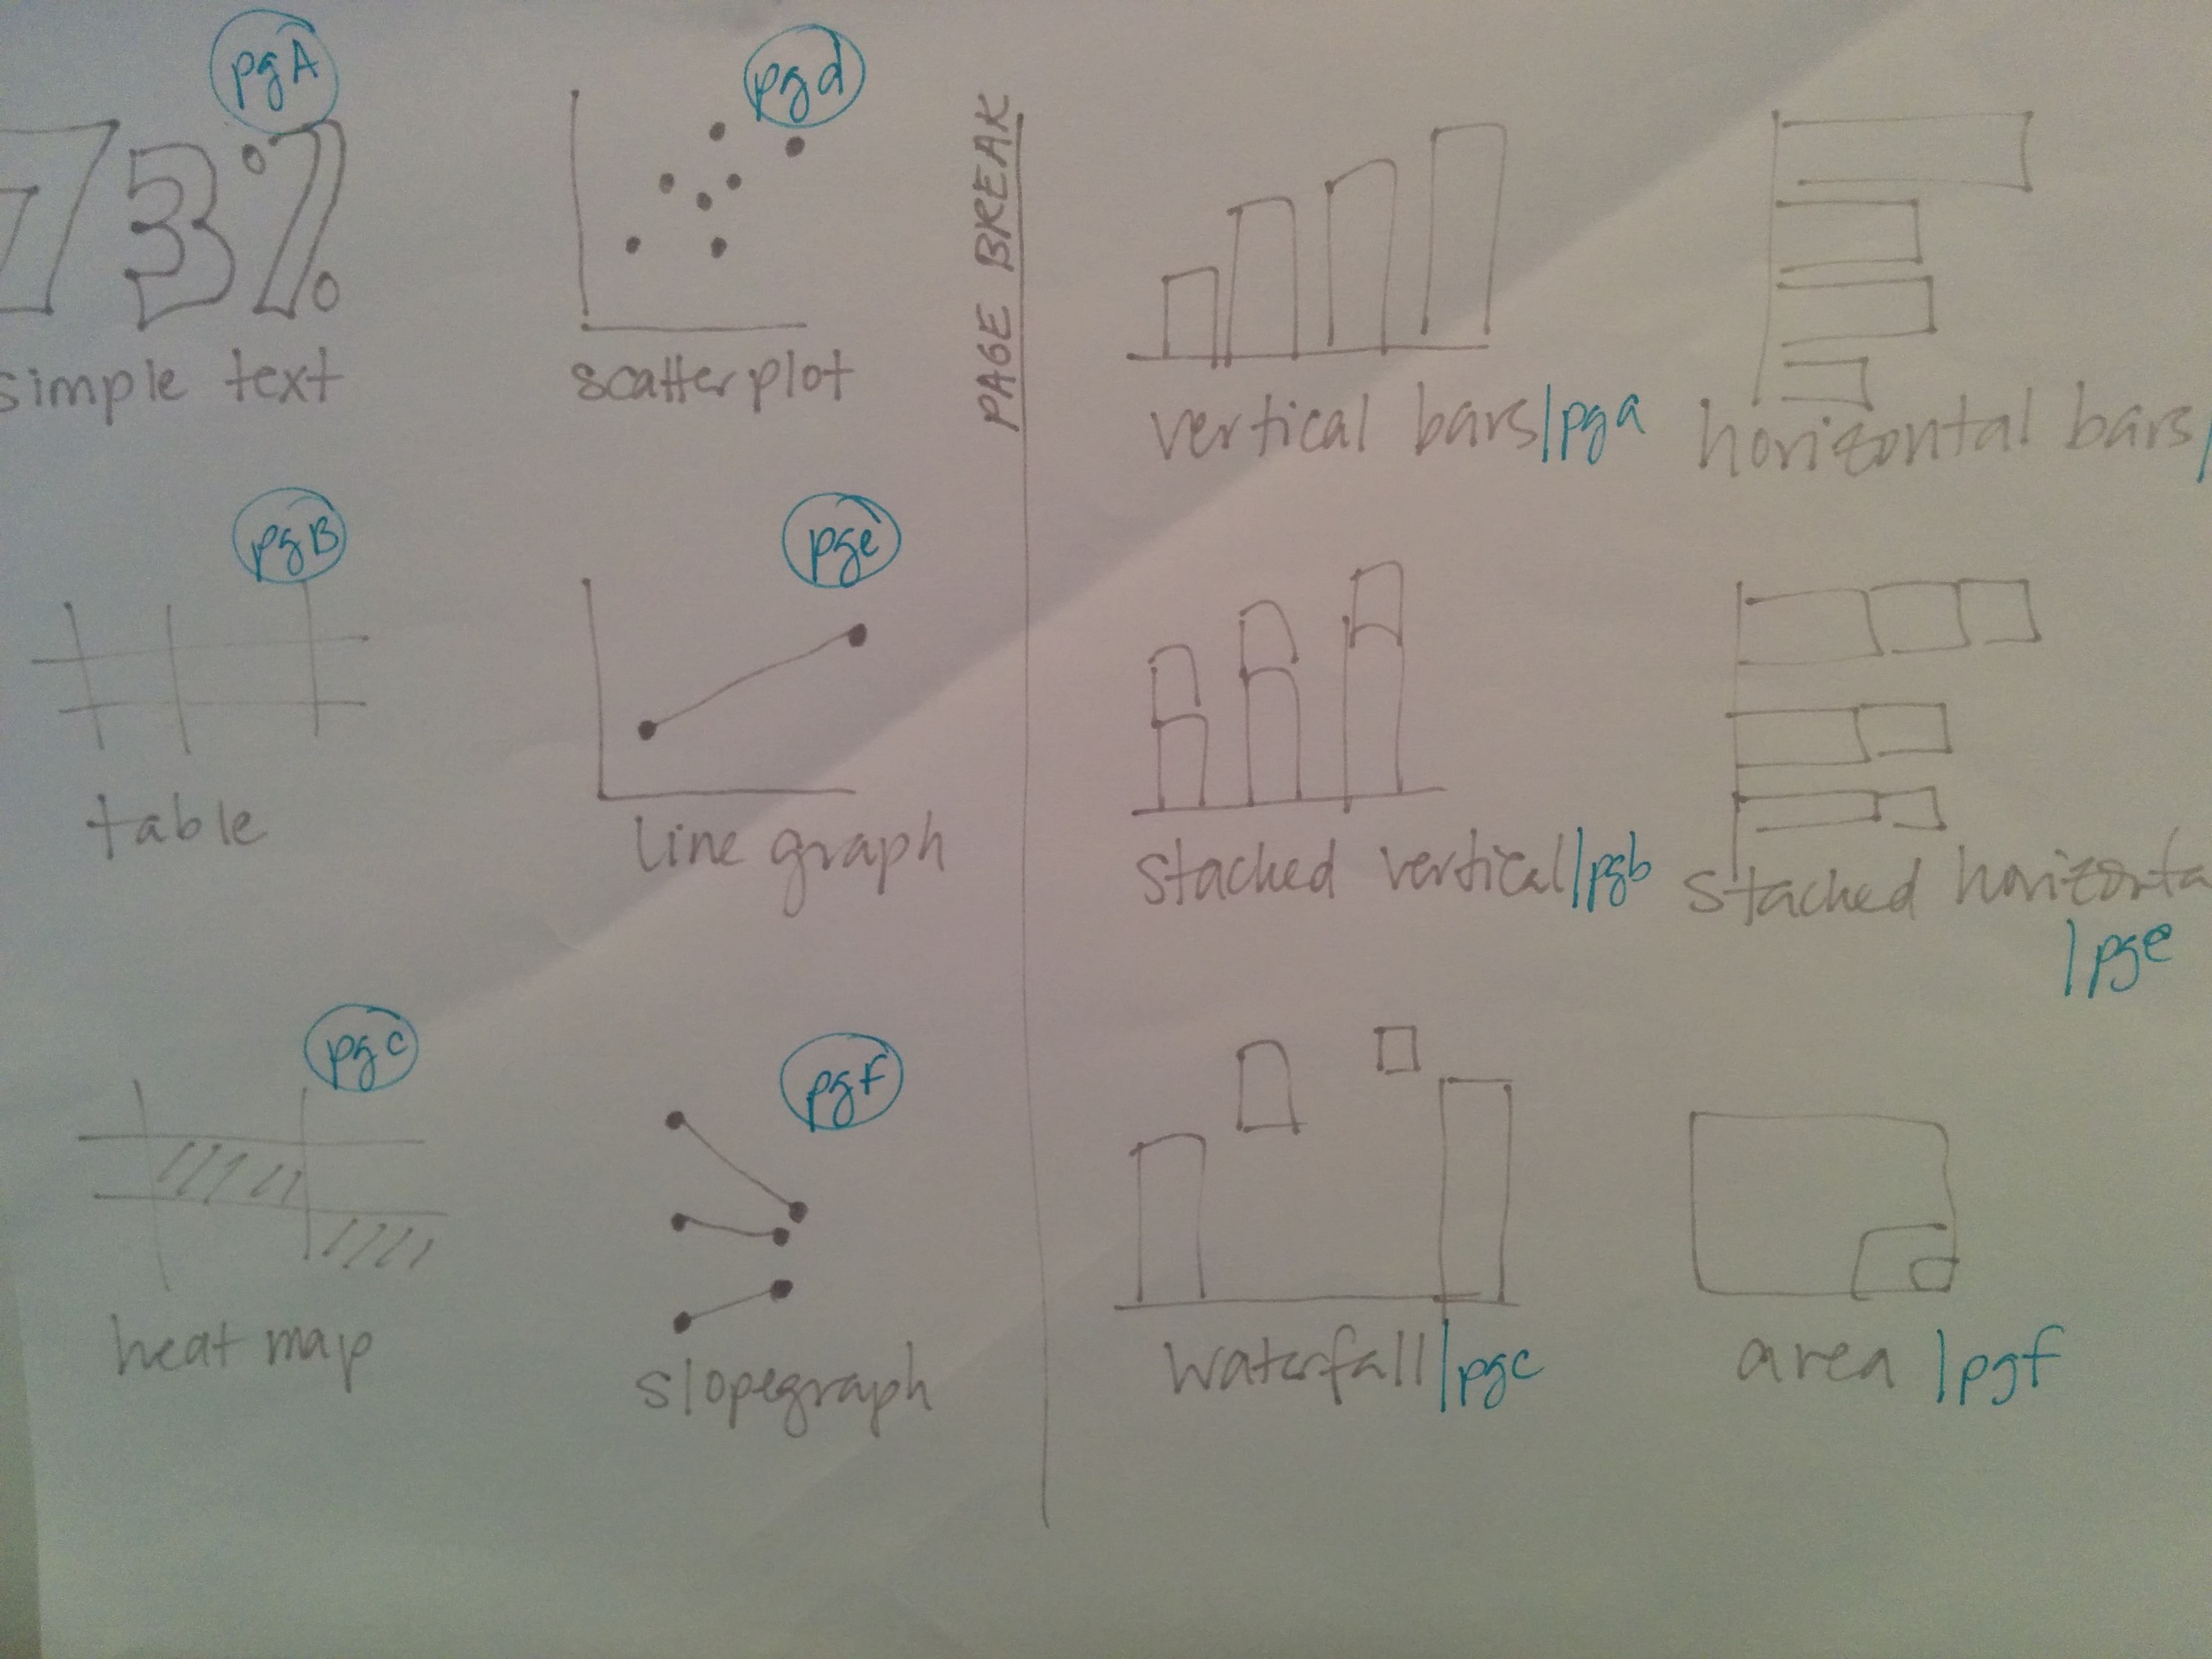 pgA
73%
simple text
pgB
table
pgc
heat map
pgd
scatterplot
pge
line graph
pgf
slopegraph
PAGE BREAK
vertical bars/pga
stacked vertical/pgb
waterfall/pgc
horizontal bars/
stacked horizonta
/pge
area /pgf